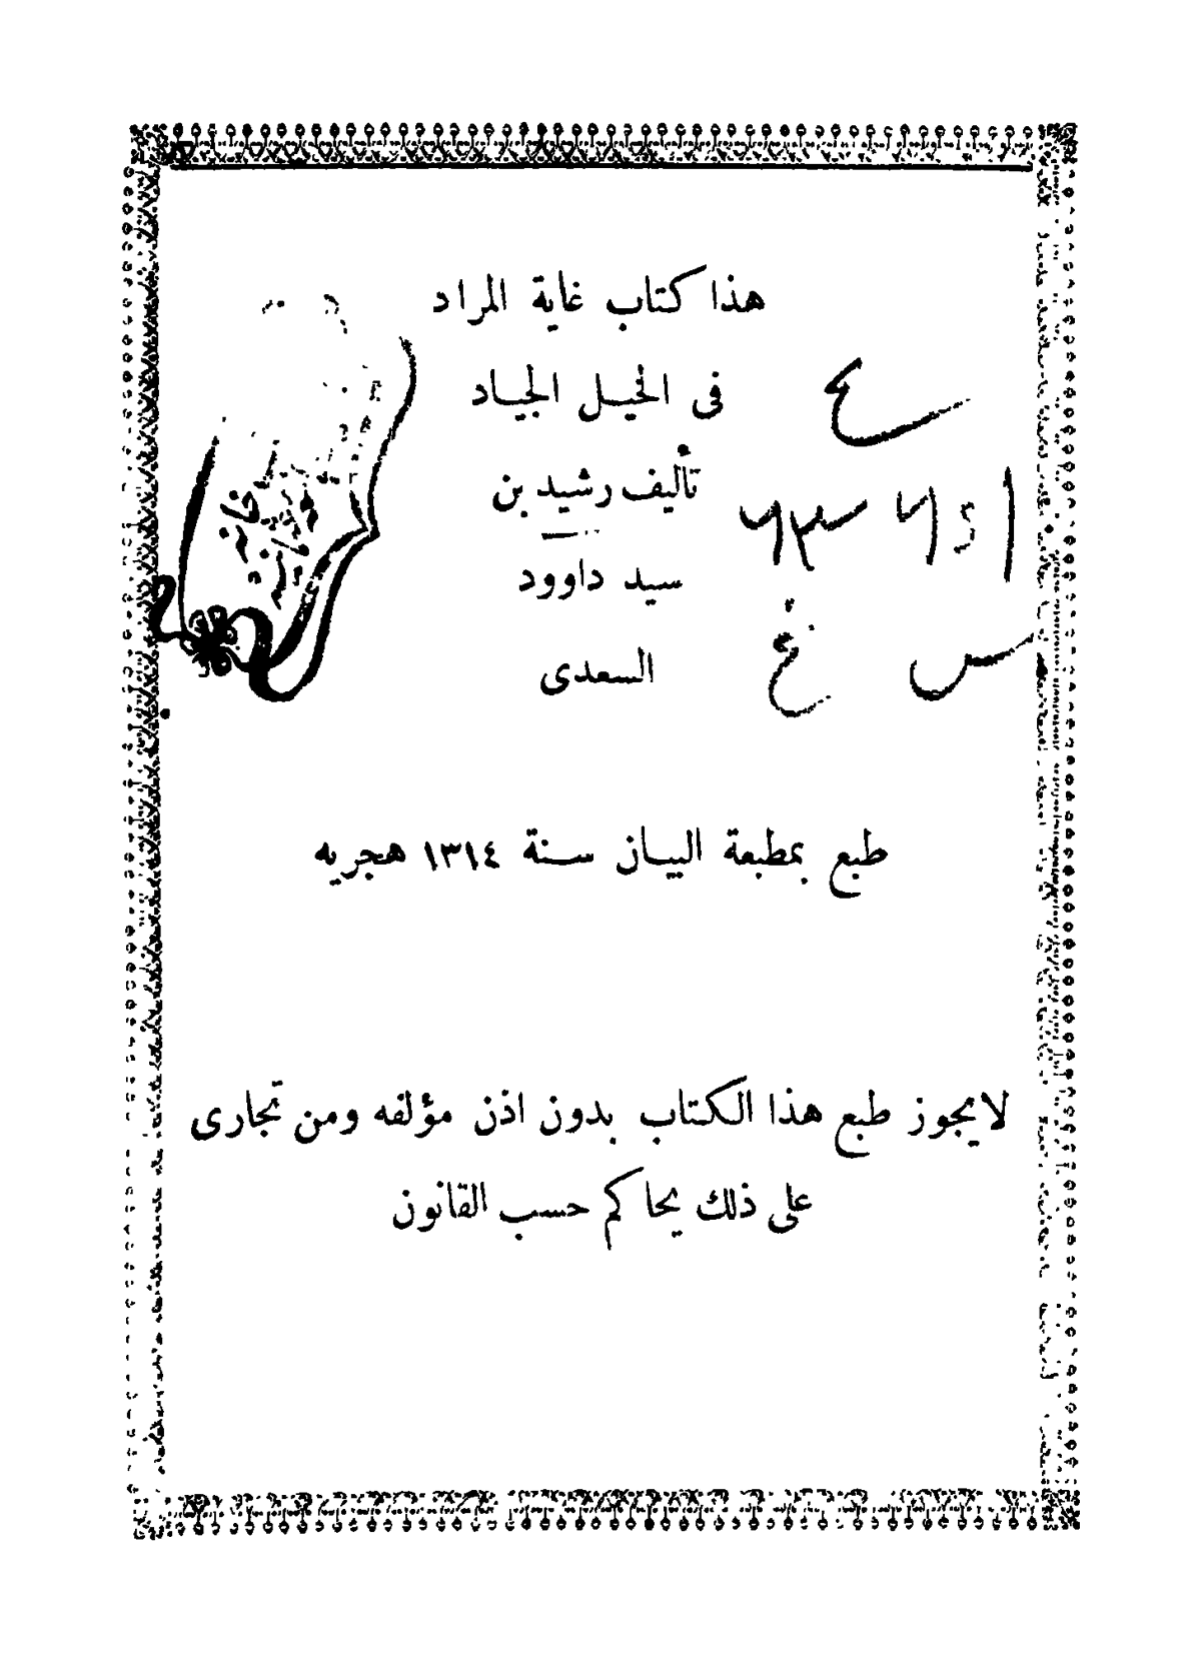 هذا كتاب غاية المراد
فى الخيل الجياد
تأليف رشيد بن
سيد داوود
السعدى
طبع بمطبعة البيان سنة ١٣١٤ هجريه
لايجوز طبع هذا الكتاب بدون اذن مؤلفه ومن تجارى
على ذلك يحاكم حسب القانون